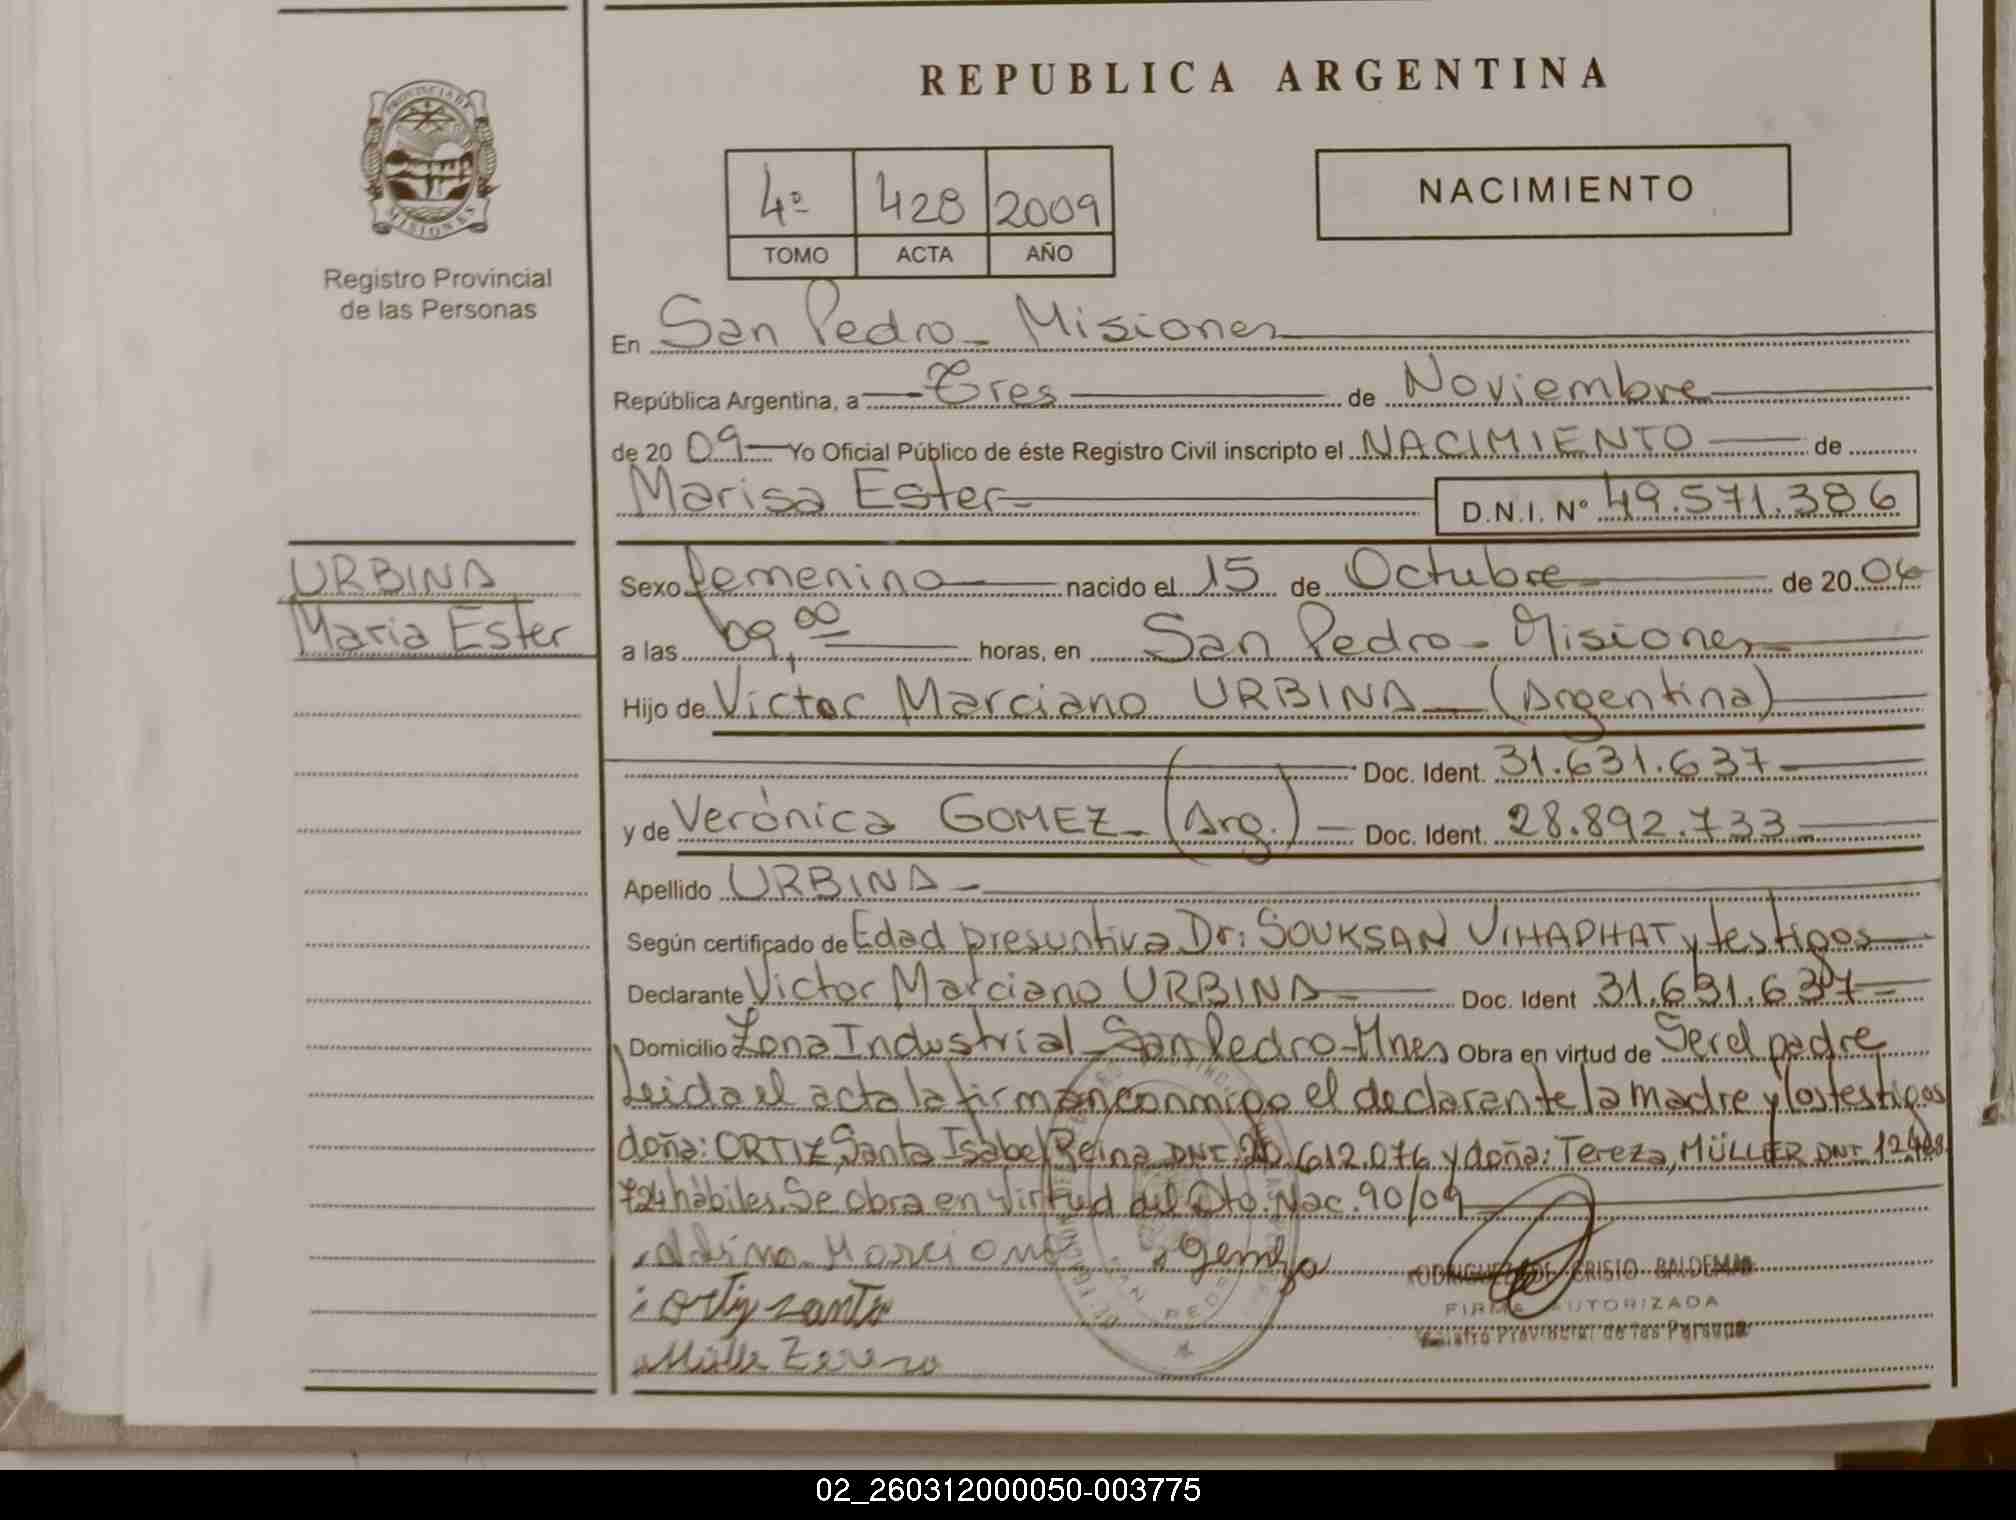 REPUBLICA ARGENTINA
PROVINCIA DE
MISIONES
Registro Provincial
de las Personas
4º 428 2009
TOMO ACTA AÑO
NACIMIENTO
En San Pedro - Misiones
República Argentina, a Tres de Noviembre
de 20 09 Yo Oficial Público de éste Registro Civil inscripto el NACIMIENTO de
Marisa Ester D.N.I. Nº 49.571.386
URBINA
Maria Ester
Sexo femenino nacido el 15 de Octubre de 20 06
a las 09,00 horas, en San Pedro - Misiones
Hijo de Victor Marciano URBINA - (Argentina)
Doc. Ident. 31.631.637
y de Verónica GOMEZ - (Arg.) - Doc. Ident. 28.892.733
Apellido URBINA -
Según certificado de Edad presuntiva Dr: SOUKSAN VIHAPHAT y testigos
Declarante Victor Marciano URBINA Doc. Ident 31.631.637
Domicilio Zona Industrial - San Pedro - Mnes Obra en virtud de Ser el padre
Leida el acta la firman conmigo el declarante la madre y los testigos
doña: ORTIZ, Santa Isabel Reina DNI. 20.612.076 y doña: Tereza, MÜLLER DNI. 12.408.
724 hábiles. Se obra en virtud del Dto. Nac. 90/09
Marciano
ortiz santa
RODRIGUEZ DE CRISTO BALDEMAR
FIRMA AUTORIZADA
Registro Provincial de las Personas
02_260312000050-003775